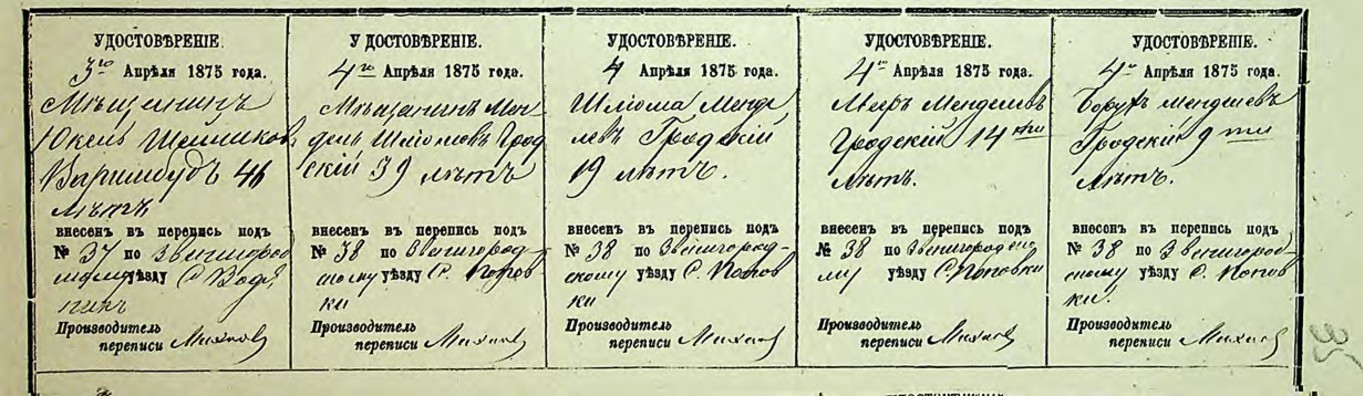 УДОСТОВѢРЕНІЕ.
3го Апрѣля 1875 года.
Мѣщанинъ
Юкель
46
лѣтъ
внесенъ въ перепись подъ
№ 37 по Звенигород
скому уѣзду С.
Производитель
переписи
УДОСТОВѢРЕНІЕ.
4го Апрѣля 1875 года.
Мѣщанинъ Мен-
дель Шліомовъ Грод
скій 39 лѣтъ
внесенъ въ перепись подъ
№ 38 по Звенигород-
скому уѣзду С. Попов
ки
Производитель
переписи
УДОСТОВѢРЕНІЕ.
4 Апрѣля 1875 года.
Шліома Менде
левъ Гродскій
19 лѣтъ.
внесенъ въ перепись подъ
№ 38 по Звенигород-
скому уѣзду С. Попов
ки
Производитель
переписи
УДОСТОВѢРЕНІЕ.
4го Апрѣля 1875 года.
Менделевъ
Гродскій 14ти
лѣтъ.
внесенъ въ перепись подъ
№ 38 по Звенигородско
му уѣзду С. Поповки
Производитель
переписи
УДОСТОВѢРЕНІЕ.
4го Апрѣля 1875 года.
Борухъ Менделевъ
Гродскій 9ти
лѣтъ.
внесенъ въ перепись подъ
№ 38 по Звенигород-
скому уѣзду С. Попов
ки.
Производитель
переписи